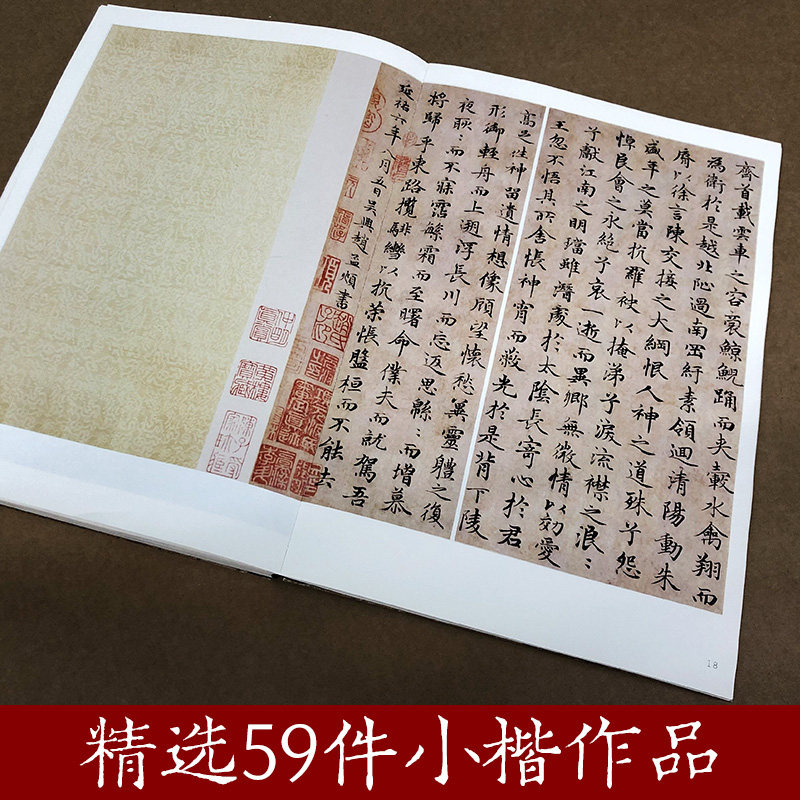 齊首載雲車之容裔鯨鯢踊而夾轂水禽翔而
為衛於是越北沚過南岡紆素領迴清陽動朱
脣以徐言陳交接之大綱恨人神之道殊兮怨
盛年之莫當抗羅袂以掩涕兮淚流襟之浪〻
悼良會之永絕兮哀一逝而異鄉無微情以効愛
兮獻江南之明璫雖潛處於太陰長寄心於君
王忽不悟其所舍悵神宵而蔽光於是背下陵
高足往神留遺情想像顧望懷愁冀靈體之復
形御輕舟而上遡浮長川而忘返思緜〻而增慕
夜耿〻而不寐霑繁霜而至曙命僕夫而就駕吾
將歸乎東路攬騑轡以抗策悵盤桓而不能去
延祐六年八月五日吳興趙孟頫書
18
精选59件小楷作品